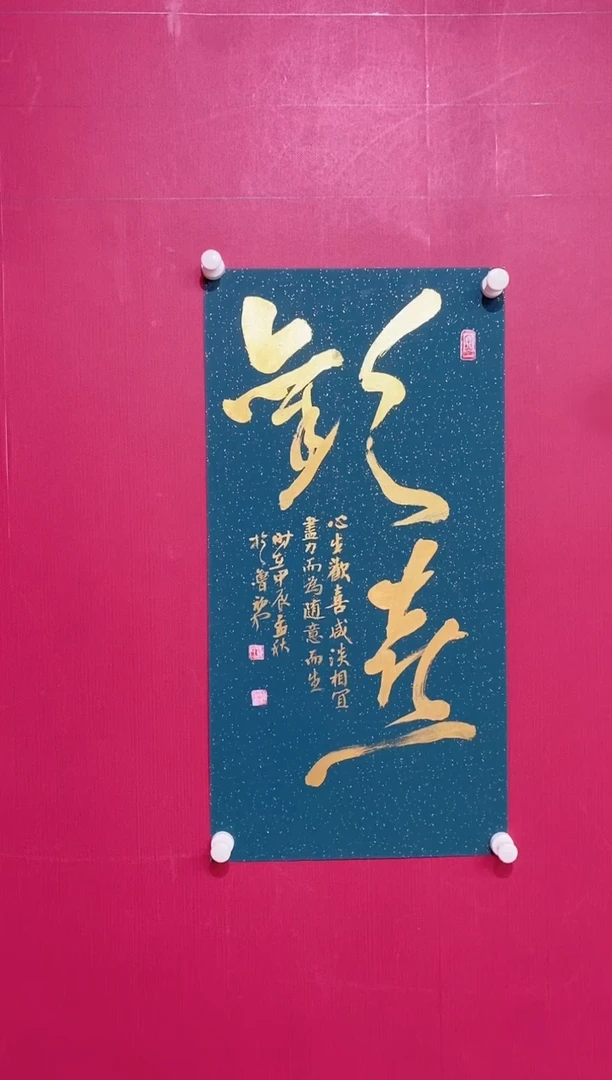 歡喜
心生歡喜咸淡相宜
盡力而為随意而生
时在甲辰孟秋
於魯